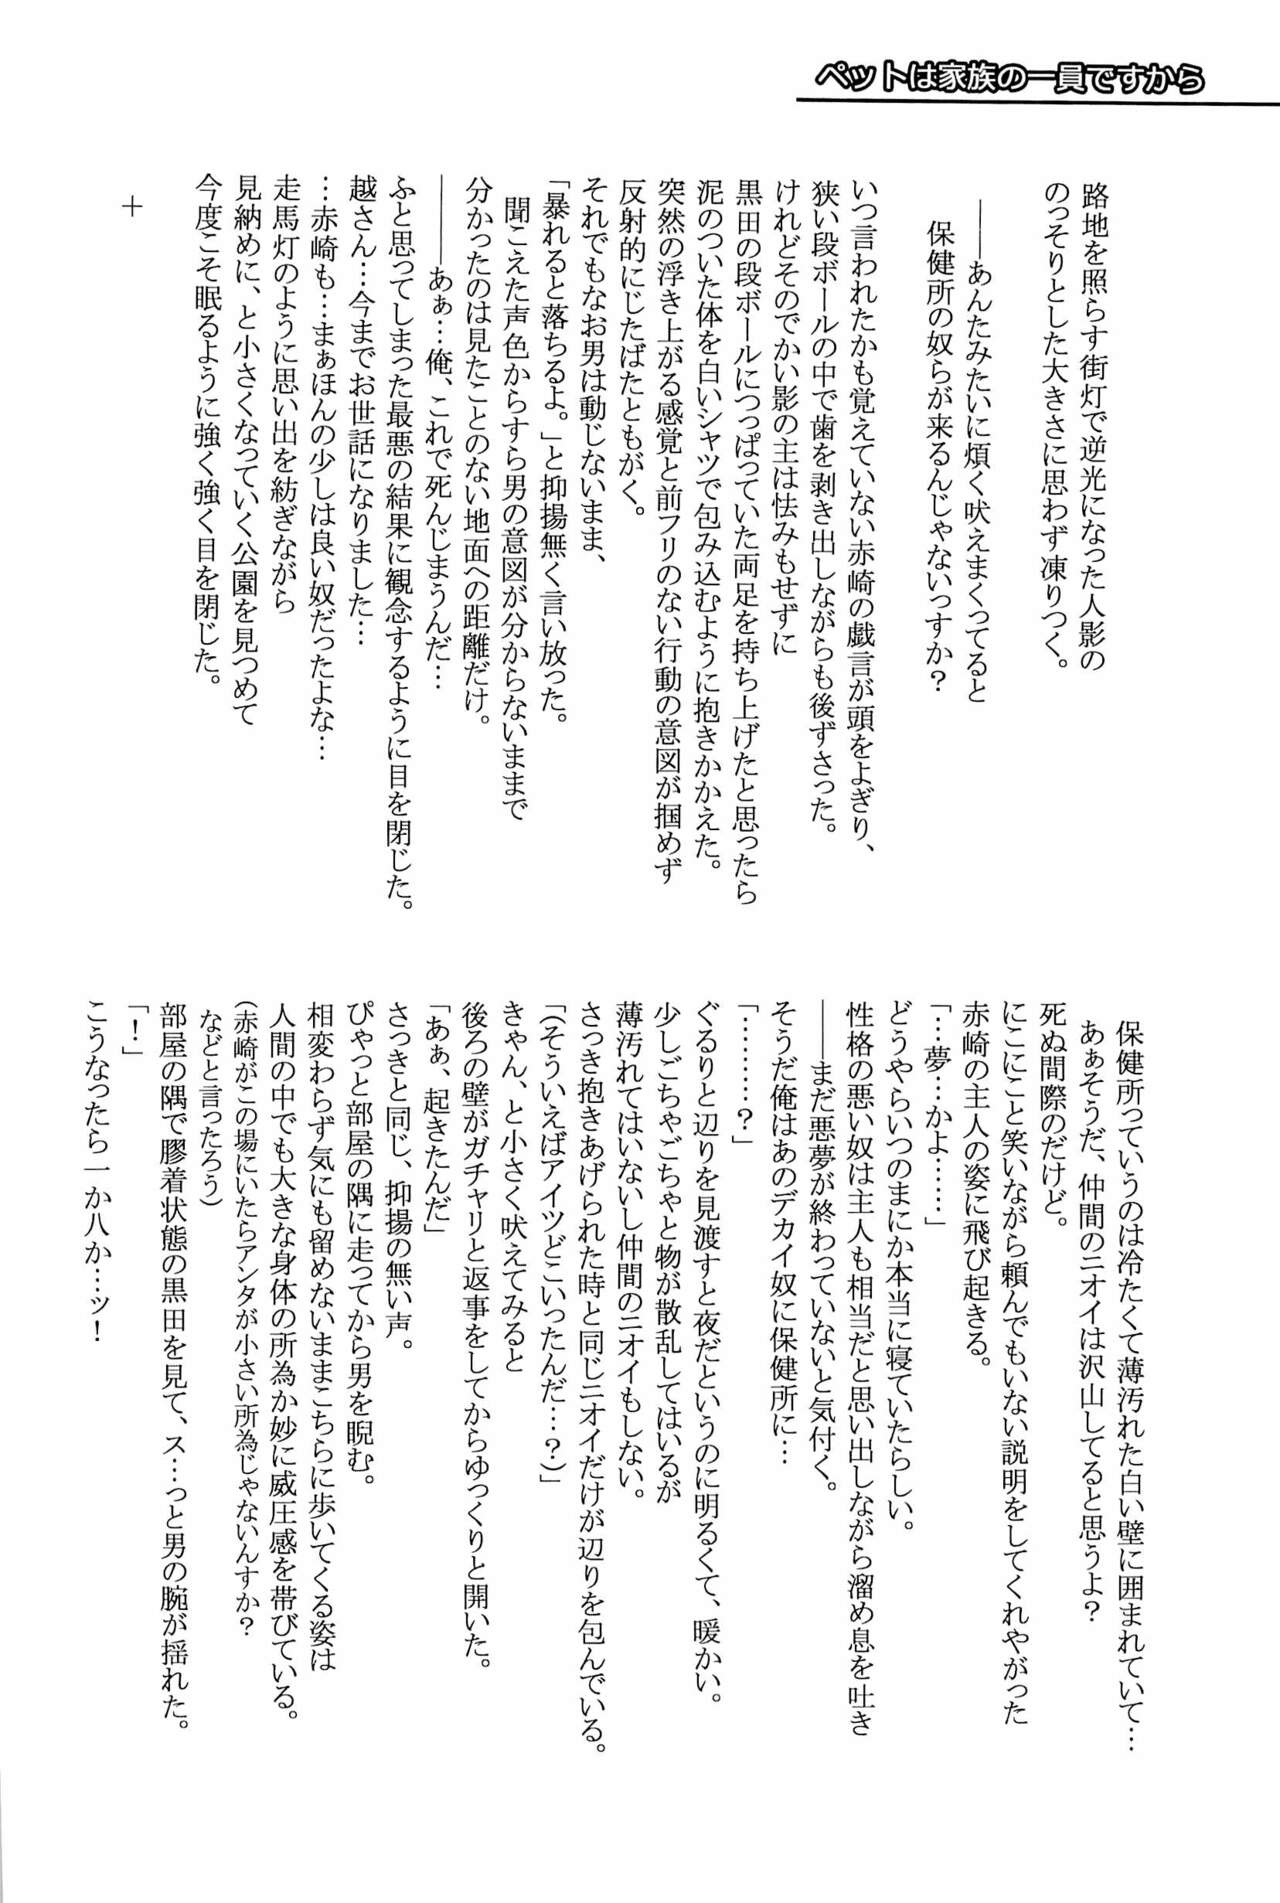 ペットは家族の一員ですから
路地を照らす街灯で逆光になった人影の
のっそりとした大きさに思わず凍りつく。
――あんたみたいに煩く吠えまくってると
保健所の奴らが来るんじゃないっすか？
いつ言われたかも覚えていない赤崎の戯言が頭をよぎり、
狭い段ボールの中で歯を剥き出しながらも後ずさった。
けれどそのでかい影の主は怯みもせずに
黒田の段ボールにつっぱっていた両足を持ち上げたと思ったら
泥のついた体を白いシャツで包み込むように抱きかかえた。
突然の浮き上がる感覚と前フリのない行動の意図が掴めず
反射的にじたばたともがく。
それでもなお男は動じないまま、
「暴れると落ちるよ。」と抑揚無く言い放った。
聞こえた声色からすら男の意図が分からないままで
分かったのは見たことのない地面への距離だけ。
――あぁ…俺、これで死んじまうんだ…
ふと思ってしまった最悪の結果に観念するように目を閉じた。
越さん…今までお世話になりました…
…赤崎も…まぁほんの少しは良い奴だったよな…
走馬灯のように思い出を紡ぎながら
見納めに、と小さくなっていく公園を見つめて
今度こそ眠るように強く強く目を閉じた。
＋
保健所っていうのは冷たくて薄汚れた白い壁に囲まれていて…
あぁそうだ、仲間のニオイは沢山してると思うよ？
死ぬ間際のだけど。
にこにこと笑いながら頼んでもいない説明をしてくれやがった
赤崎の主人の姿に飛び起きる。
「…夢…かよ……」
どうやらいつのまにか本当に寝ていたらしい。
性格の悪い奴は主人も相当だと思い出しながら溜め息を吐き
――まだ悪夢が終わっていないと気付く。
そうだ俺はあのデカイ奴に保健所に…
「………？」
ぐるりと辺りを見渡すと夜だというのに明るくて、暖かい。
少しごちゃごちゃと物が散乱してはいるが
薄汚れてはいないし仲間のニオイもしない。
さっき抱きあげられた時と同じニオイだけが辺りを包んでいる。
「（そういえばアイツどこいったんだ…？）」
きゃん、と小さく吠えてみると
後ろの壁がガチャリと返事をしてからゆっくりと開いた。
「あぁ、起きたんだ」
さっきと同じ、抑揚の無い声。
ぴゃっと部屋の隅に走ってから男を睨む。
相変わらず気にも留めないままこちらに歩いてくる姿は
人間の中でも大きな身体の所為か妙に威圧感を帯びている。
（赤崎がこの場にいたらアンタが小さい所為じゃないんすか？
などと言ったろう）
部屋の隅で膠着状態の黒田を見て、ス…っと男の腕が揺れた。
「！」
こうなったら一か八か…ッ！